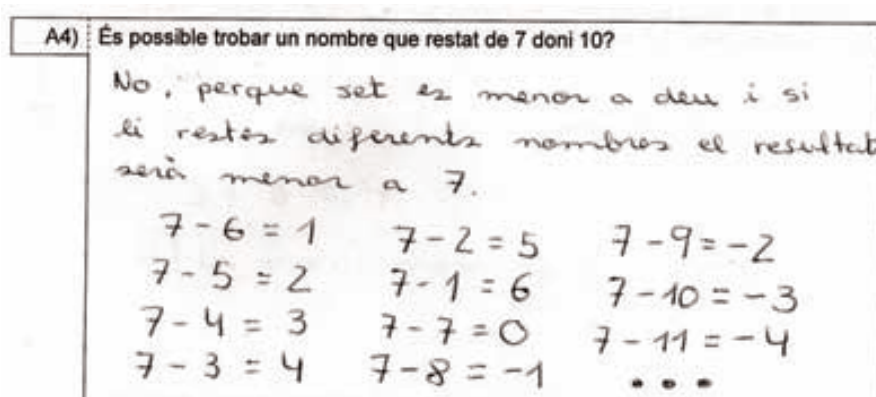 A4) És possible trobar un nombre que restat de 7 doni 10?
No, perque set es menor a deu i si
li restes diferents nombres el resultat
serà menor a 7.
7 - 6 = 1 7 - 2 = 5 7 - 9 = -2
7 - 5 = 2 7 - 1 = 6 7 - 10 = -3
7 - 4 = 3 7 - 7 = 0 7 - 11 = -4
7 - 3 = 4 7 - 8 = -1 ...